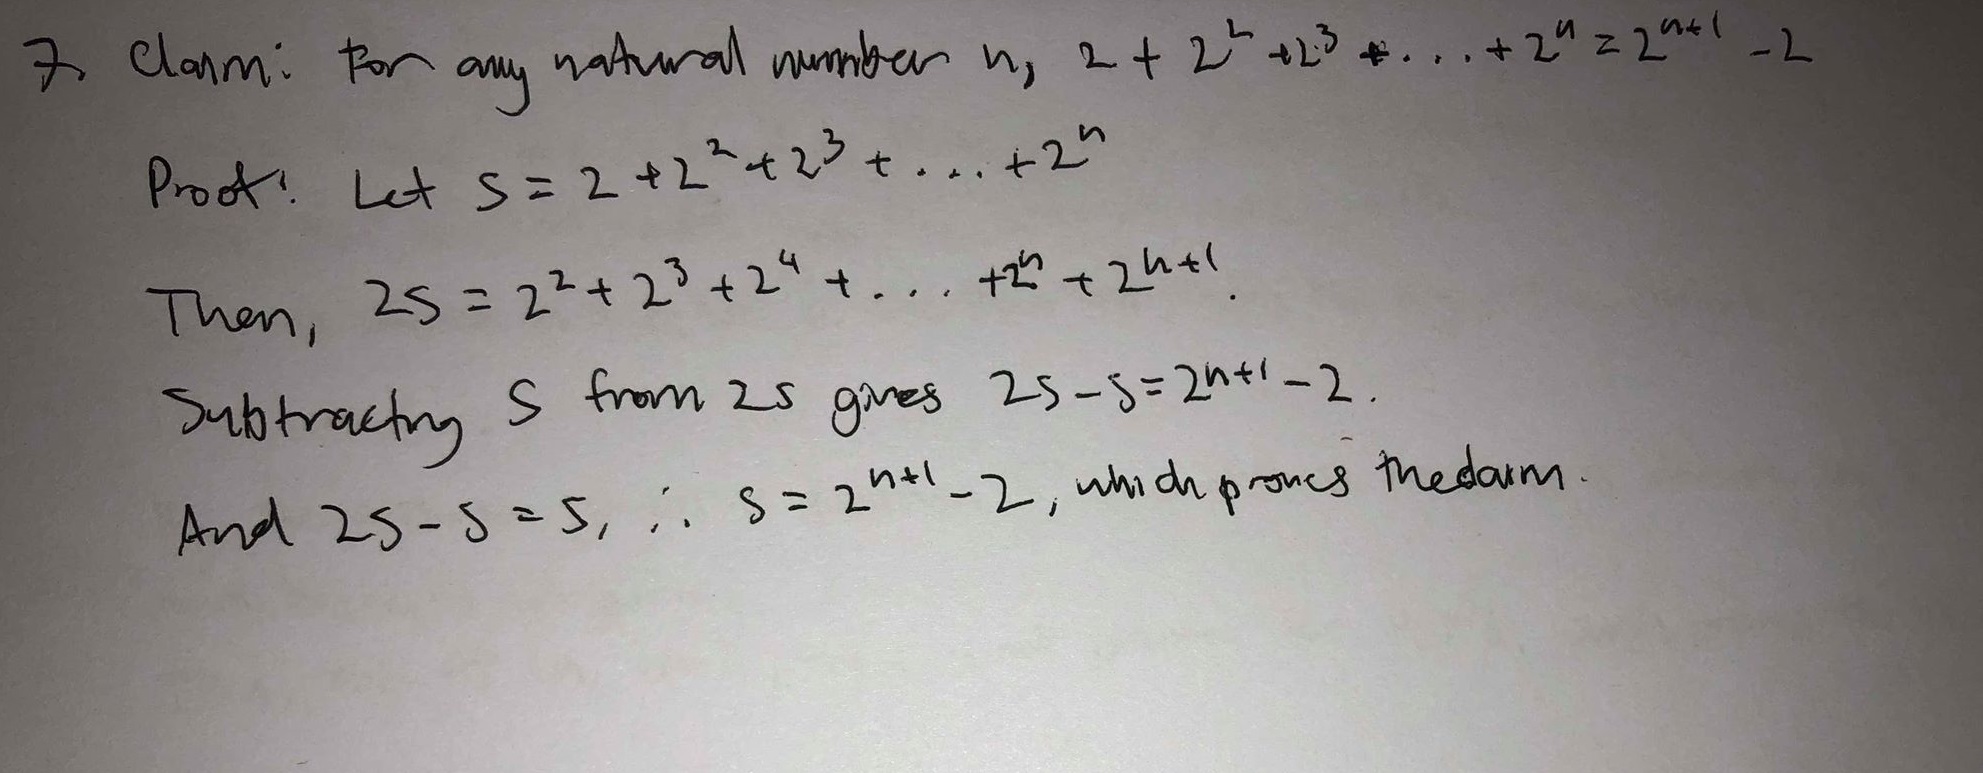 7. Claim: For any natural number n, 2 + 2² + 2³ + ... + 2ⁿ = 2ⁿ⁺¹ - 2
Proof: Let S = 2 + 2² + 2³ + ... + 2ⁿ
Then, 2S = 2² + 2³ + 2⁴ + ... + 2ⁿ + 2ⁿ⁺¹.
Subtracting S from 2S gives 2S - S = 2ⁿ⁺¹ - 2.
And 2S - S = S, ∴ S = 2ⁿ⁺¹ - 2, which proves the claim.